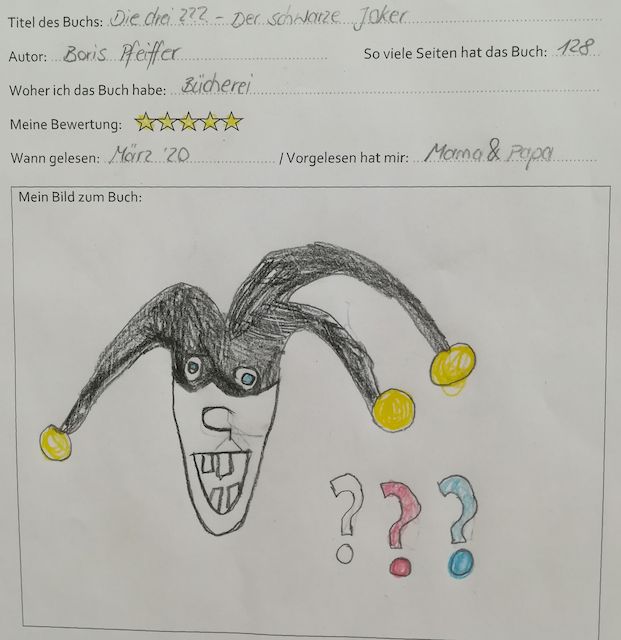 Titel des Buchs: Die drei ??? - Der schwarze Joker
Autor: Boris Pfeiffer So viele Seiten hat das Buch: 128
Woher ich das Buch habe: Bücherei
Meine Bewertung:
Wann gelesen: März '20 / Vorgelesen hat mir: Mama & Papa
Mein Bild zum Buch:
? ? ?